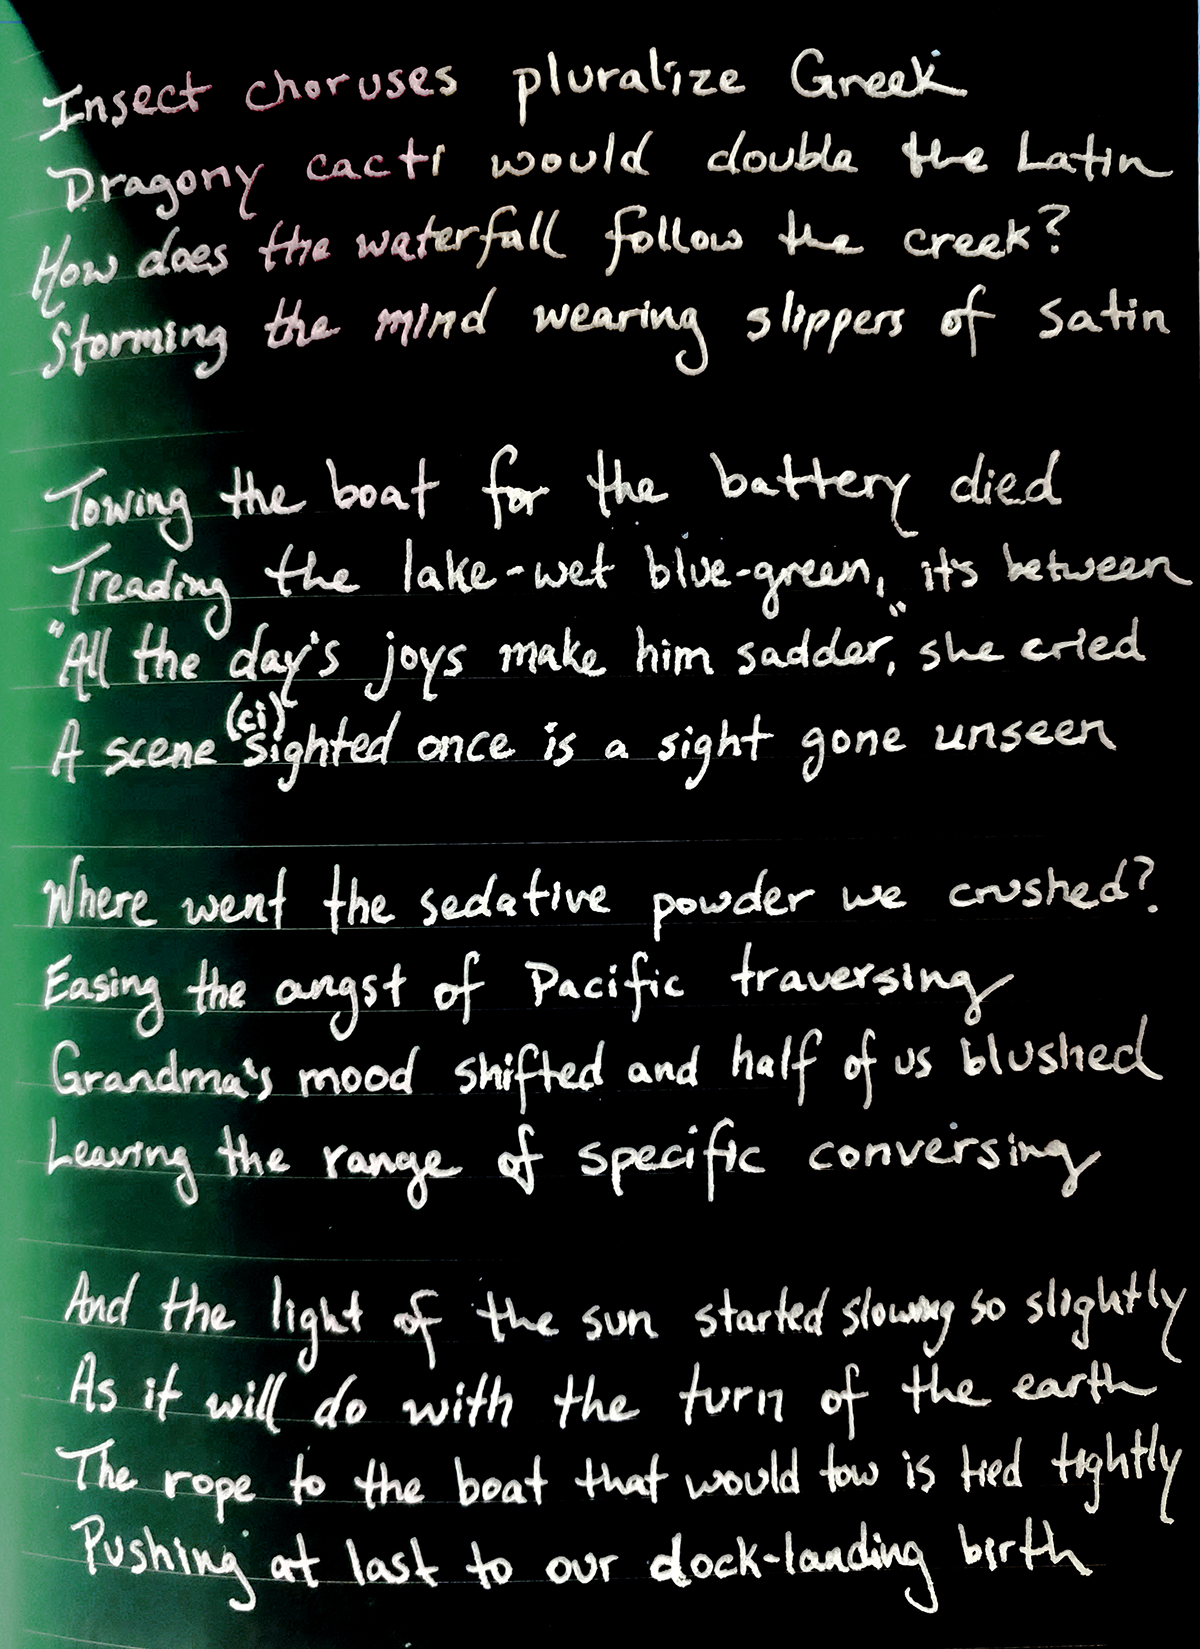 Insect choruses pluralize Greek
Dragony cacti would double the Latin
How does the waterfall follow the creek?
Storming the mind wearing slippers of satin
Towing the boat for the battery died
Treading the lake-wet blue-green, it's between
"All the day's joys make him sadder," she cried
A scene (ci) sighted once is a sight gone unseen
Where went the sedative powder we crushed?
Easing the angst of Pacific traversing
Grandma's mood shifted and half of us blushed
Leaving the range of specific conversing
And the light of the sun started slowing so slightly
As it will do with the turn of the earth
The rope to the boat that would tow is tied tightly
Pushing at last to our dock-landing birth